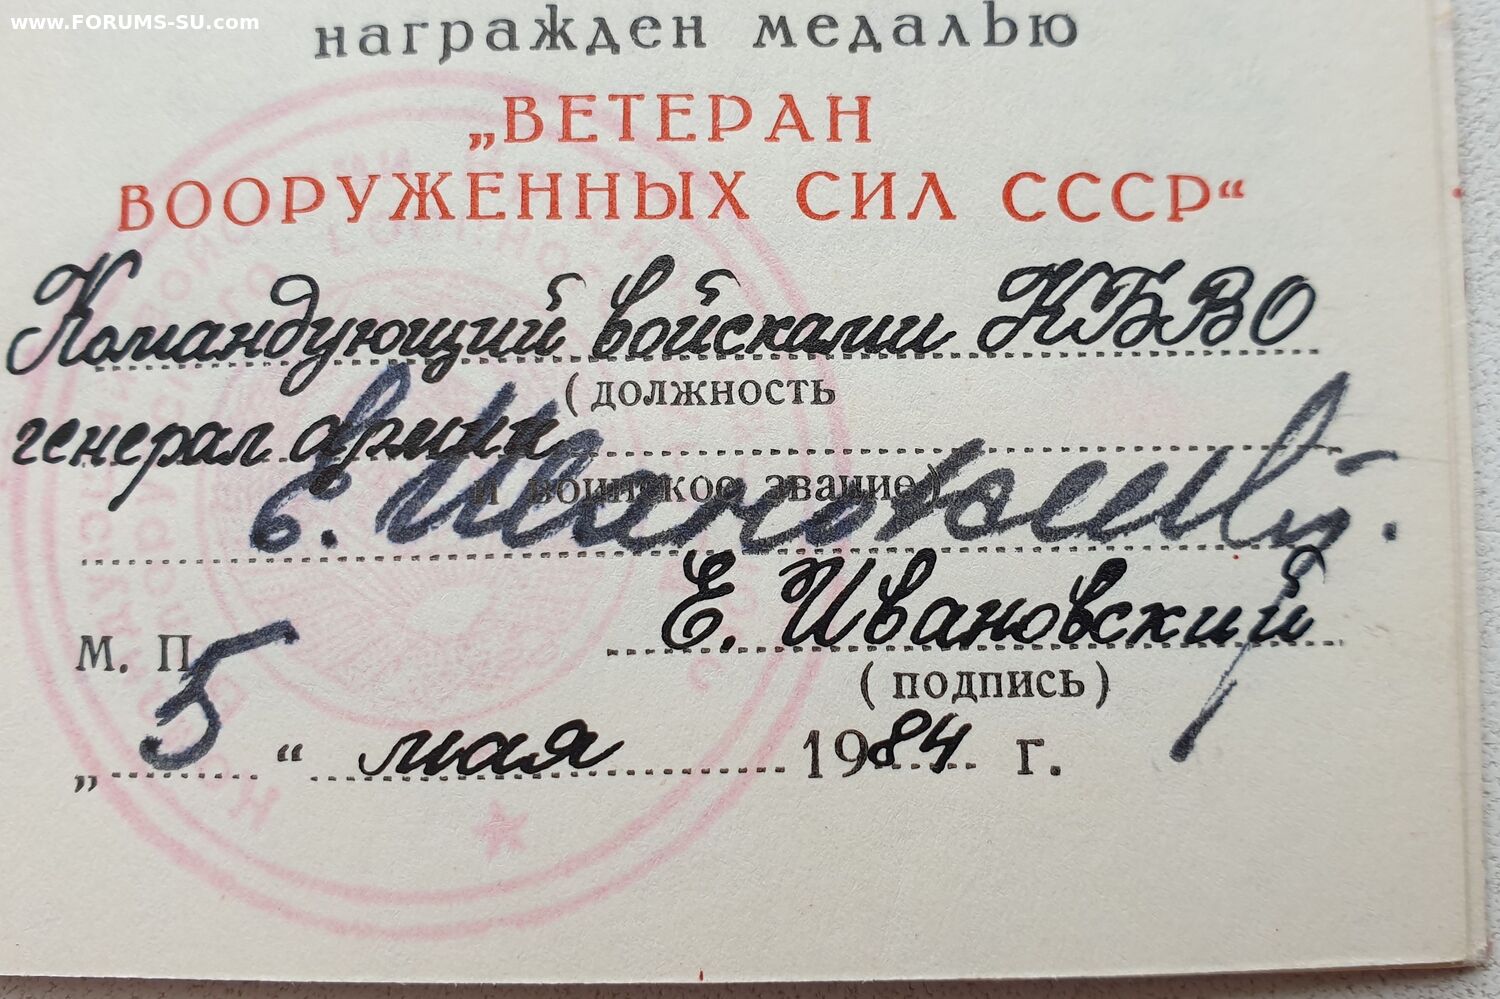 www.FORUMS-SU.com
награжден медалью
„ВЕТЕРАН
ВООРУЖЕННЫХ СИЛ СССР“
Командующий войсками КБВО
(должность
генерал армии
и воинское звание)
Е. Ивановский
Е. Ивановский
М. П.
(подпись)
„5“ мая 1984 г.